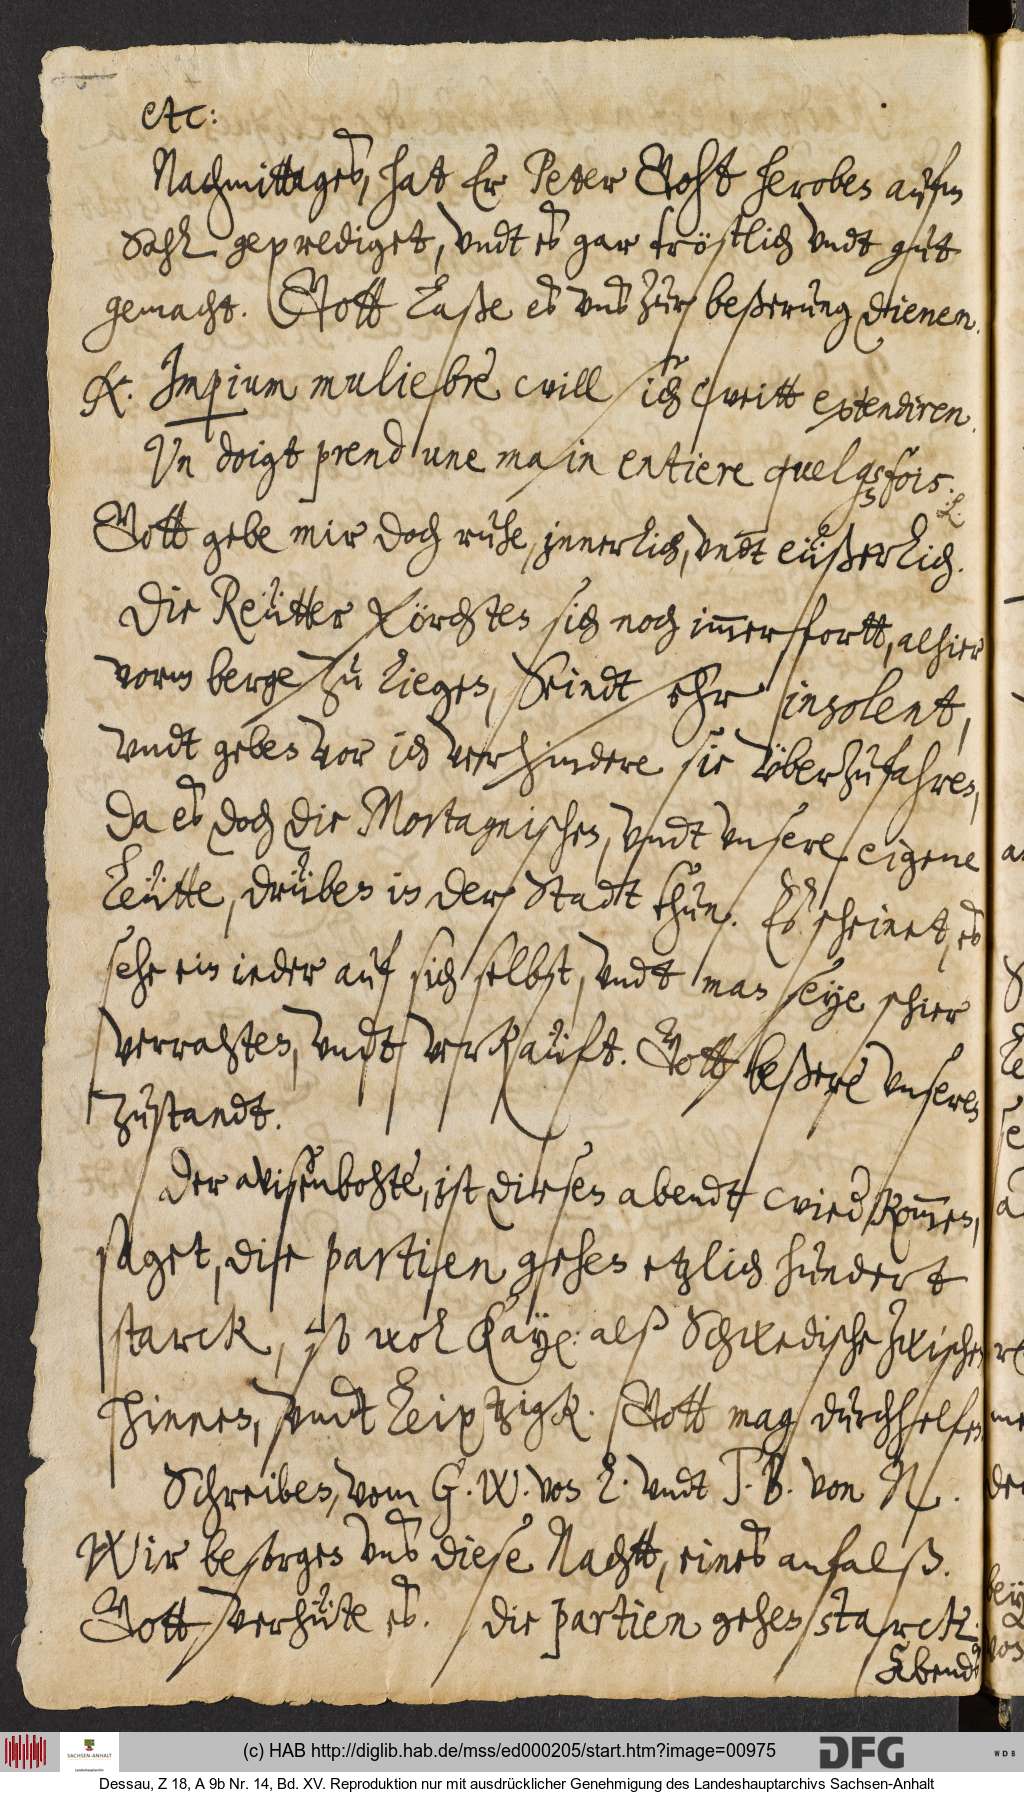 etc:
Nachmittages, hat Er Peter Goht heroben aufm
Sahl geprediget, undt es gar tröstlich undt gut
gemacht. Gott laße es uns zur beßerung dienen.
Impium muliebre will ich weitt extendiren.
Un doigt prend une main entiere quelqsfois.
Gott gebe mir doch ruhe, jnnerlich, undt eüßerlich.
Die Reütter förchten sich noch im̅er fortt, alhier
vorm berge zu liegen, Seindt sehr insolent,
undt geben vor ich verhindere sie überzufahren,
da es doch die Mortagnischen, undt unsere eigene
Leütte, drüben in der Stadt thun. Es scheinet, es
sehe ein ieder auf sich selbst, undt man seye schier
verrahten, undt verkauft. Gott beßere unseren
zustandt.
Der avisenbohte, ist diesen abendt wied kom̅en,
saget, die partien gehen etzlich hundert
starck, so wol Kay: alß Schwedische zwischen
hinnen, undt Leiptzigk. Gott mag durchhelfen
Schreiben, vom G. W. von L. undt T. B. von N.
Wir besorgen uns diese Nachtt, eines anfalß.
Gott verhüte es. Die partien gehen starck.
Abends
(c) HAB http://diglib.hab.de/mss/ed000205/start.htm?image=00975
SACHSEN-ANHALT
DFG
WDB
Dessau, Z 18, A 9b Nr. 14, Bd. XV. Reproduktion nur mit ausdrücklicher Genehmigung des Landeshauptarchivs Sachsen-Anhalt